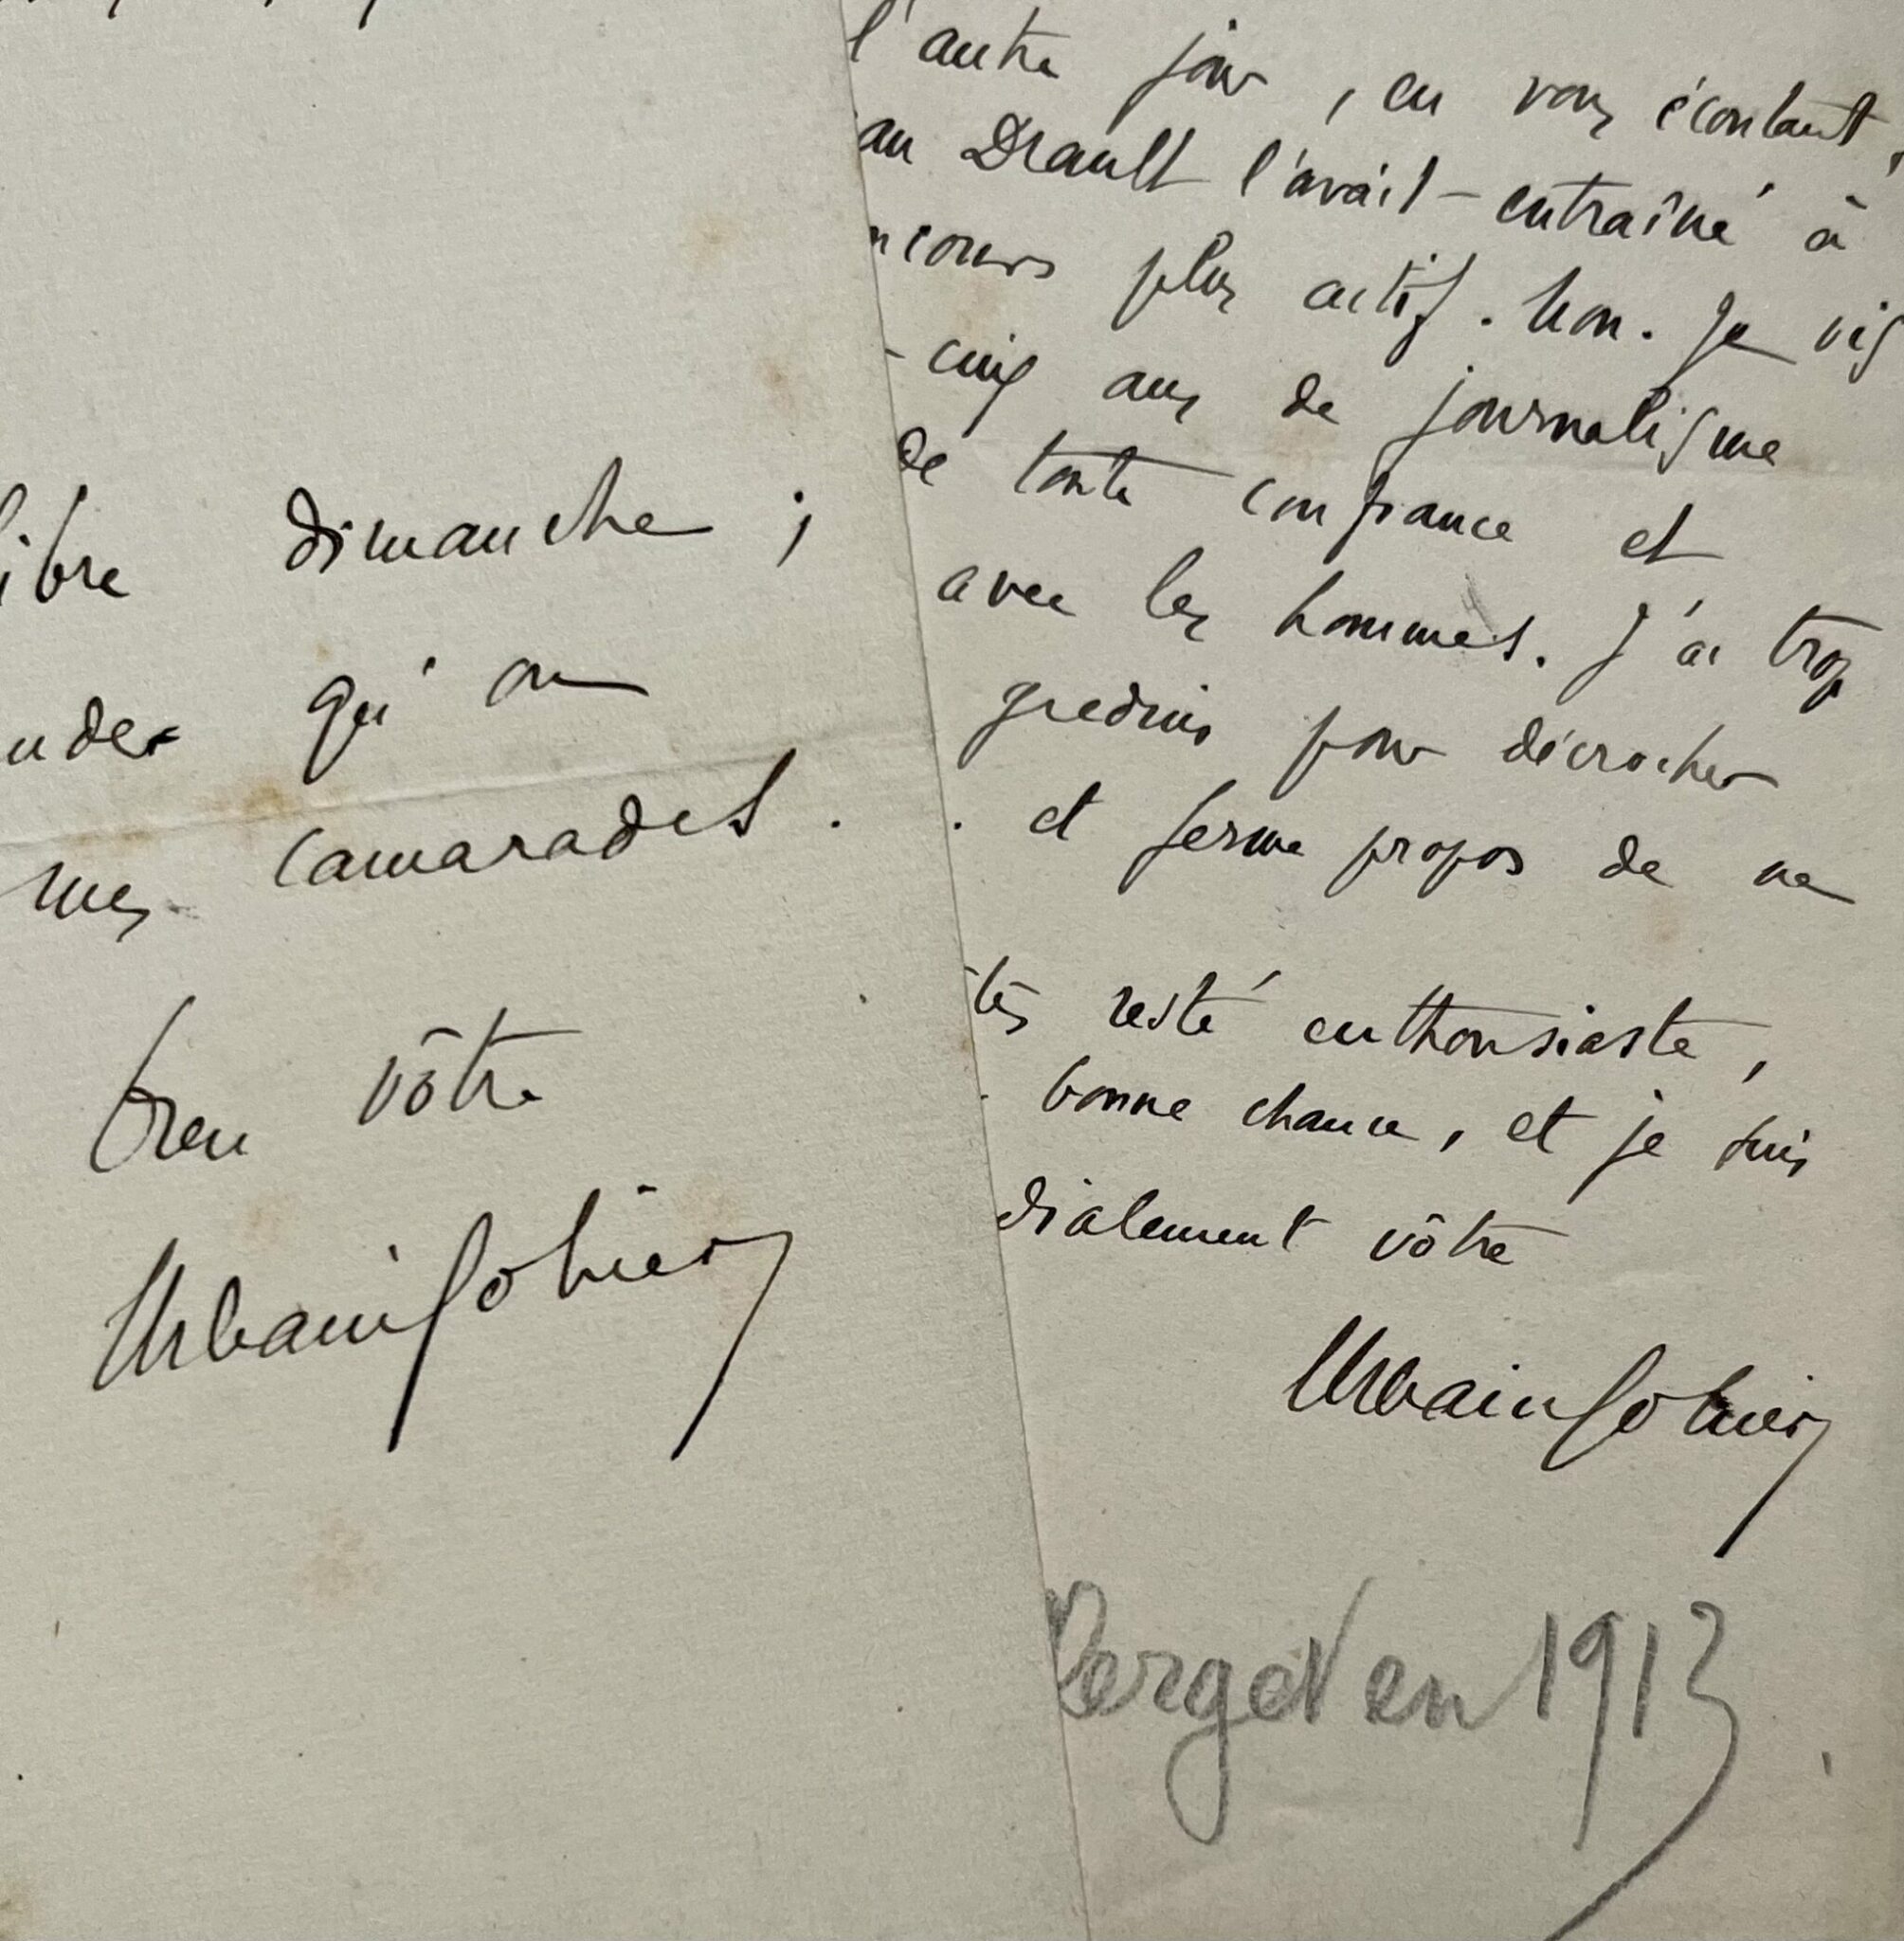 ibre dimanche ;
nder qu'on
mes camarades.
bien vôtre
Urbain Gohier
l'autre jour, en vous écoutant,
an Drault l'avait entraîné à
ncours plus actif. Non. Je vis
-cinq ans de journalisme
de toute confiance et
avec les hommes. J'ai trop
gredins pour décrocher
. et ferme propos de ne
tes resté enthousiaste,
bonne chance, et je suis
dialement vôtre
Urbain Gohier
en 1913